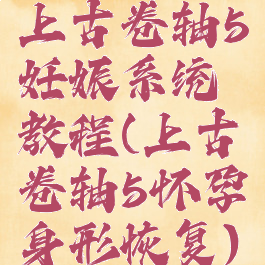 上古卷轴5
妊娠系统
教程(上古
卷轴5怀孕
身形恢复)